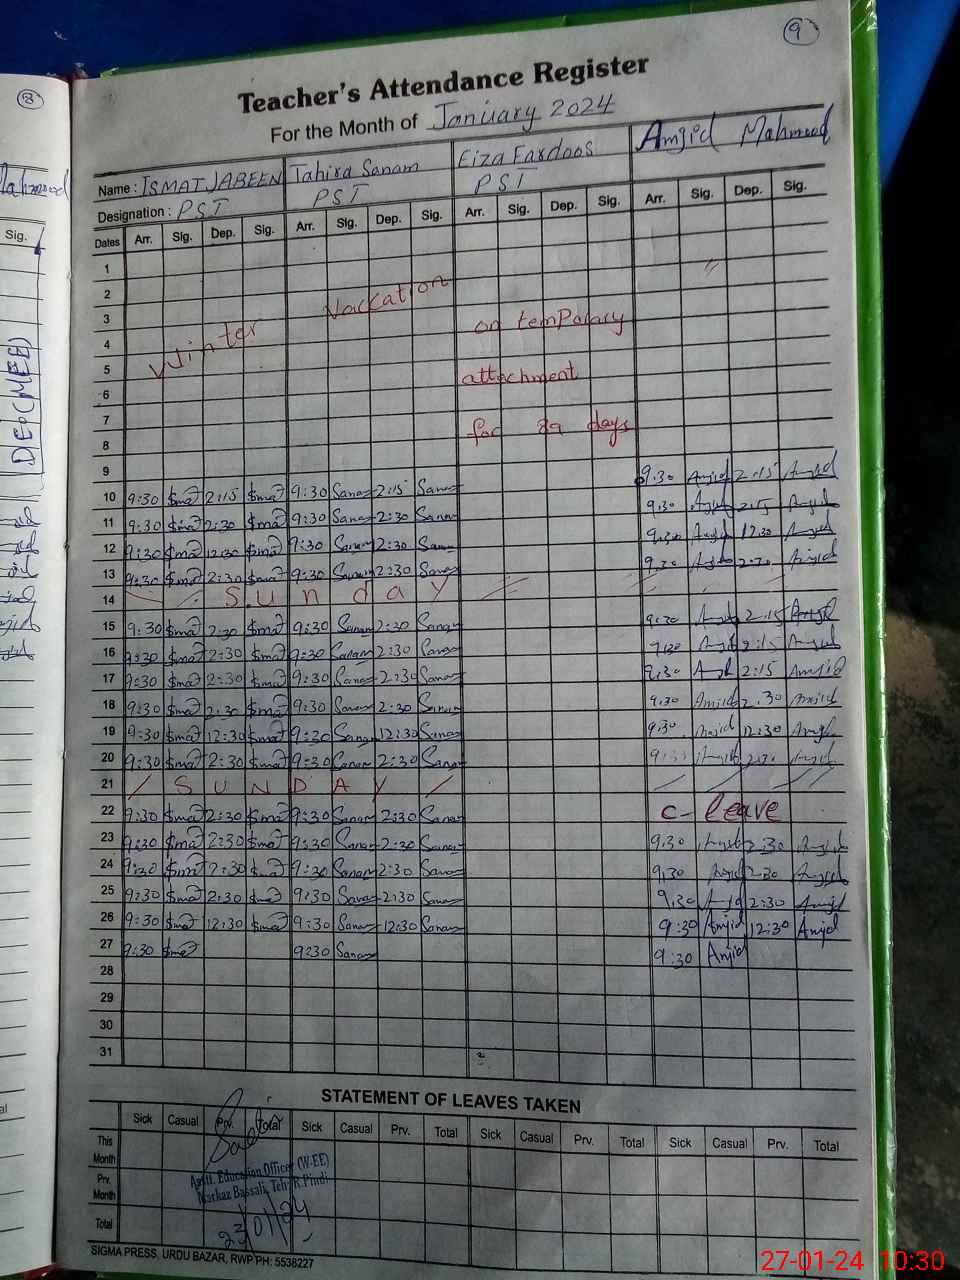 9
8
Teacher's Attendance Register
For the Month of January 2024
Name : ISMAT JABEEN Tahira Sanam Fiza Fardoos Amjid Mahmood
Designation : PST PST PST
Dates Arr. Sig. Dep. Sig. Arr. Sig. Dep. Sig. Arr. Sig. Dep. Sig. Arr. Sig. Dep. Sig.
Sig.
1
2
3 Winter Vackation on temPorary
4
5 attachment
6
7 for 89 days
8
9 9:30 Amjid 2:15 Amjid
10 9:30 2:15 9:30 Sanam 2:15 Sanam 9:30 Amjid 2:15 Amjid
11 9:30 2:30 9:30 Sanam 2:30 Sanam 9:30 Amjid 12:30 Amjid
12 9:30 12:30 9:30 Sanam 2:30 Sanam 9:30 Amjid 2:30 Amjid
13 9:30 2:30 9:30 Sanam 2:30 Sanam
14 S u n d a y
15 9:30 2:30 9:30 Sanam 2:30 Sanam 9:30 Amjid 2:15 Amjid
16 9:30 2:30 9:30 Sanam 2:30 Sanam Amjid 2:15 Amjid
17 9:30 2:30 9:30 Sanam 2:30 Sanam 9:30 Amjid 2:15 Amjid
18 9:30 2:30 9:30 Sanam 2:30 Sanam 9:30 Amjid 2:30 Amjid
19 9:30 12:30 9:30 Sanam 12:30 Sanam 9:30 Amjid 12:30 Amjid
20 9:30 2:30 9:30 Sanam 2:30 Sanam 9:30 Amjid 2:30 Amjid
21 S U N D A Y
22 9:30 2:30 9:30 Sanam 2:30 Sanam C- leave
23 9:30 2:30 9:30 Sanam 2:30 Sanam 9:30 Amjid 2:30 Amjid
24 9:30 2:30 9:30 Sanam 2:30 Sanam 9:30 Amjid 2:30 Amjid
25 9:30 2:30 9:30 Sanam 2:30 Sanam 9:30 Amjid 2:30 Amjid
26 9:30 12:30 9:30 Sanam 12:30 Sanam 9:30 Amjid 12:30 Amjid
27 9:30 9:30 Sanam 9:30 Amjid
28
29
30
31
STATEMENT OF LEAVES TAKEN
Sick Casual Prv. Total Sick Casual Prv. Total Sick Casual Prv. Total Sick Casual Prv. Total
This Month
Prv. Month
Total
Asstt. Education Officer (W-EE)
Markaz Bassali, Teh: R.Pindi
23/01/24
SIGMA PRESS, URDU BAZAR, RWP PH: 5538227
DEO(MEE)
27-01-24 10:30